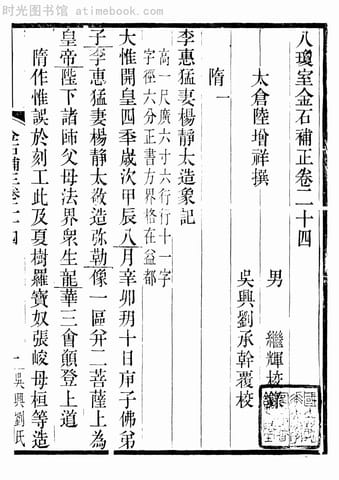 时光图书馆 - atimebook.com
八瓊室金石補正卷二十四
太倉陸增祥撰
男 繼輝校錄
吳興劉承幹覆校
隋一
李惠猛妻楊靜太造象記
高一尺廣六寸六行行十一字
字徑六分正書方界格在益都
大惟開皇四季歲次甲辰八月辛卯朔十日庚子佛弟
子李惠猛妻楊靜太敬造弥勒像一區并二菩薩上為
皇帝陛下諸師父母法界衆生龍華三會願登上道
隋作惟誤於刻工此及夏樹羅寶奴張峻母桓等造
金石補正卷二十四
一 吳興劉氏
时光图书馆 - atimebook.com